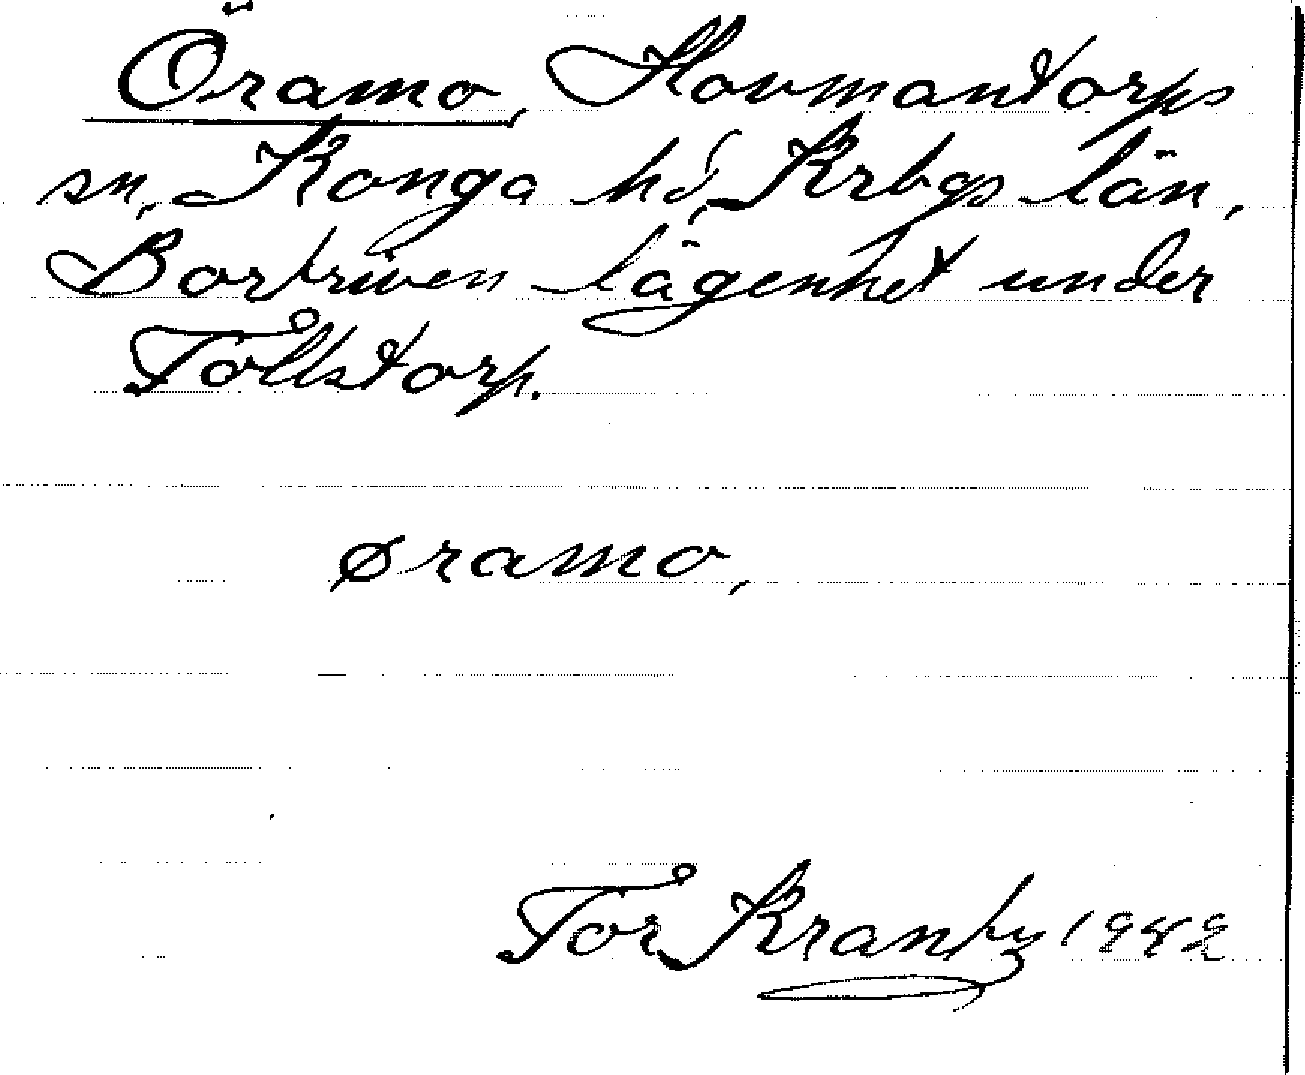 Öramo, Hovmantorps
sn, Konga hd, Krbgs län,
Bortriven lägenhet under
Tollstorp.
øramo,
Tor Krantz 1942